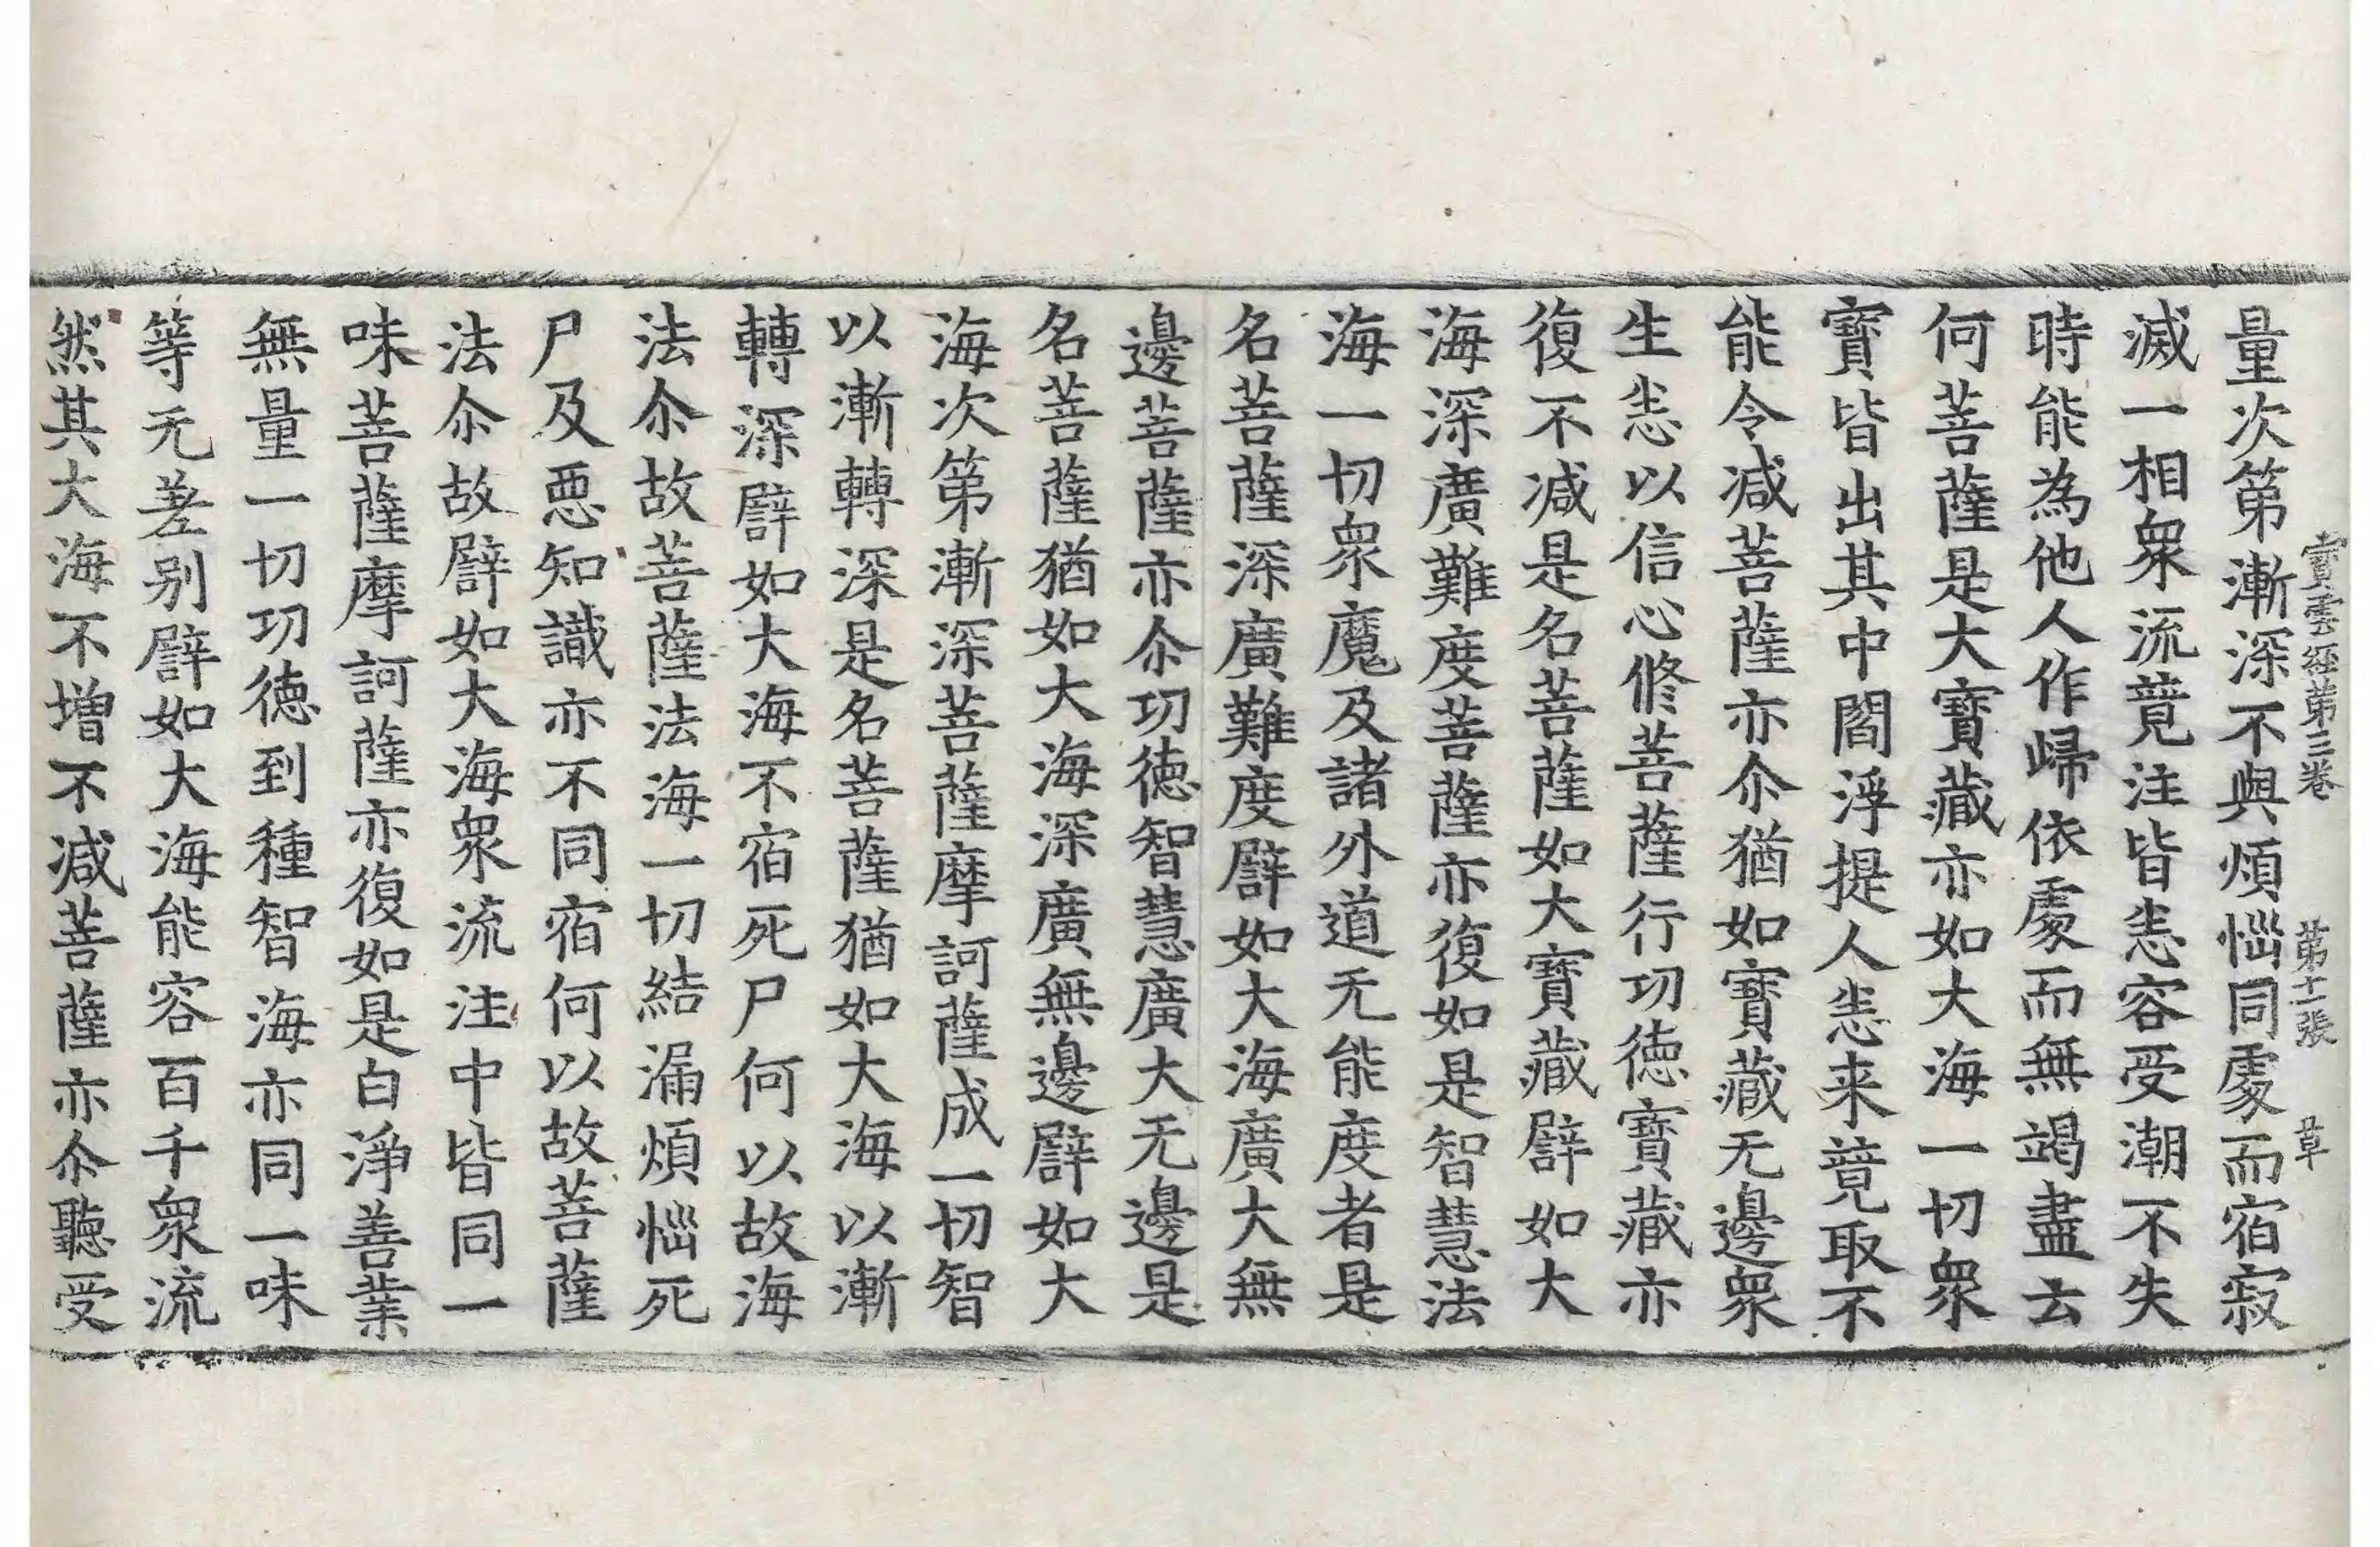 寳雲經第三卷 第十一張 草
量次第漸深不與煩惱同處而宿寂
滅一相衆流竟注皆悉容受潮不失
時能為他人作歸依處而無竭盡云
何菩薩是大寳藏亦如大海一切衆
寳皆出其中閻浮提人悉来競取不
能令减菩薩亦尒猶如寳藏无邊衆
生悉以信心修菩薩行功徳寳藏亦
復不减是名菩薩如大寳藏譬如大
海深廣難度菩薩亦復如是智慧法
海一切衆魔及諸外道无能度者是
名菩薩深廣難度譬如大海廣大無
邊菩薩亦尒功徳智慧廣大无邊是
名菩薩猶如大海深廣無邊譬如大
海次第漸深菩薩摩訶薩成一切智
以漸轉深是名菩薩猶如大海以漸
轉深譬如大海不宿死尸何以故海
法尒故菩薩法海一切結漏煩惱死
尸及惡知識亦不同宿何以故菩薩
法尒故譬如大海衆流注中皆同一
味菩薩摩訶薩亦復如是白淨善業
無量一切功徳到種智海亦同一味
等无差别譬如大海能容百千衆流
然其大海不增不减菩薩亦尒聽受